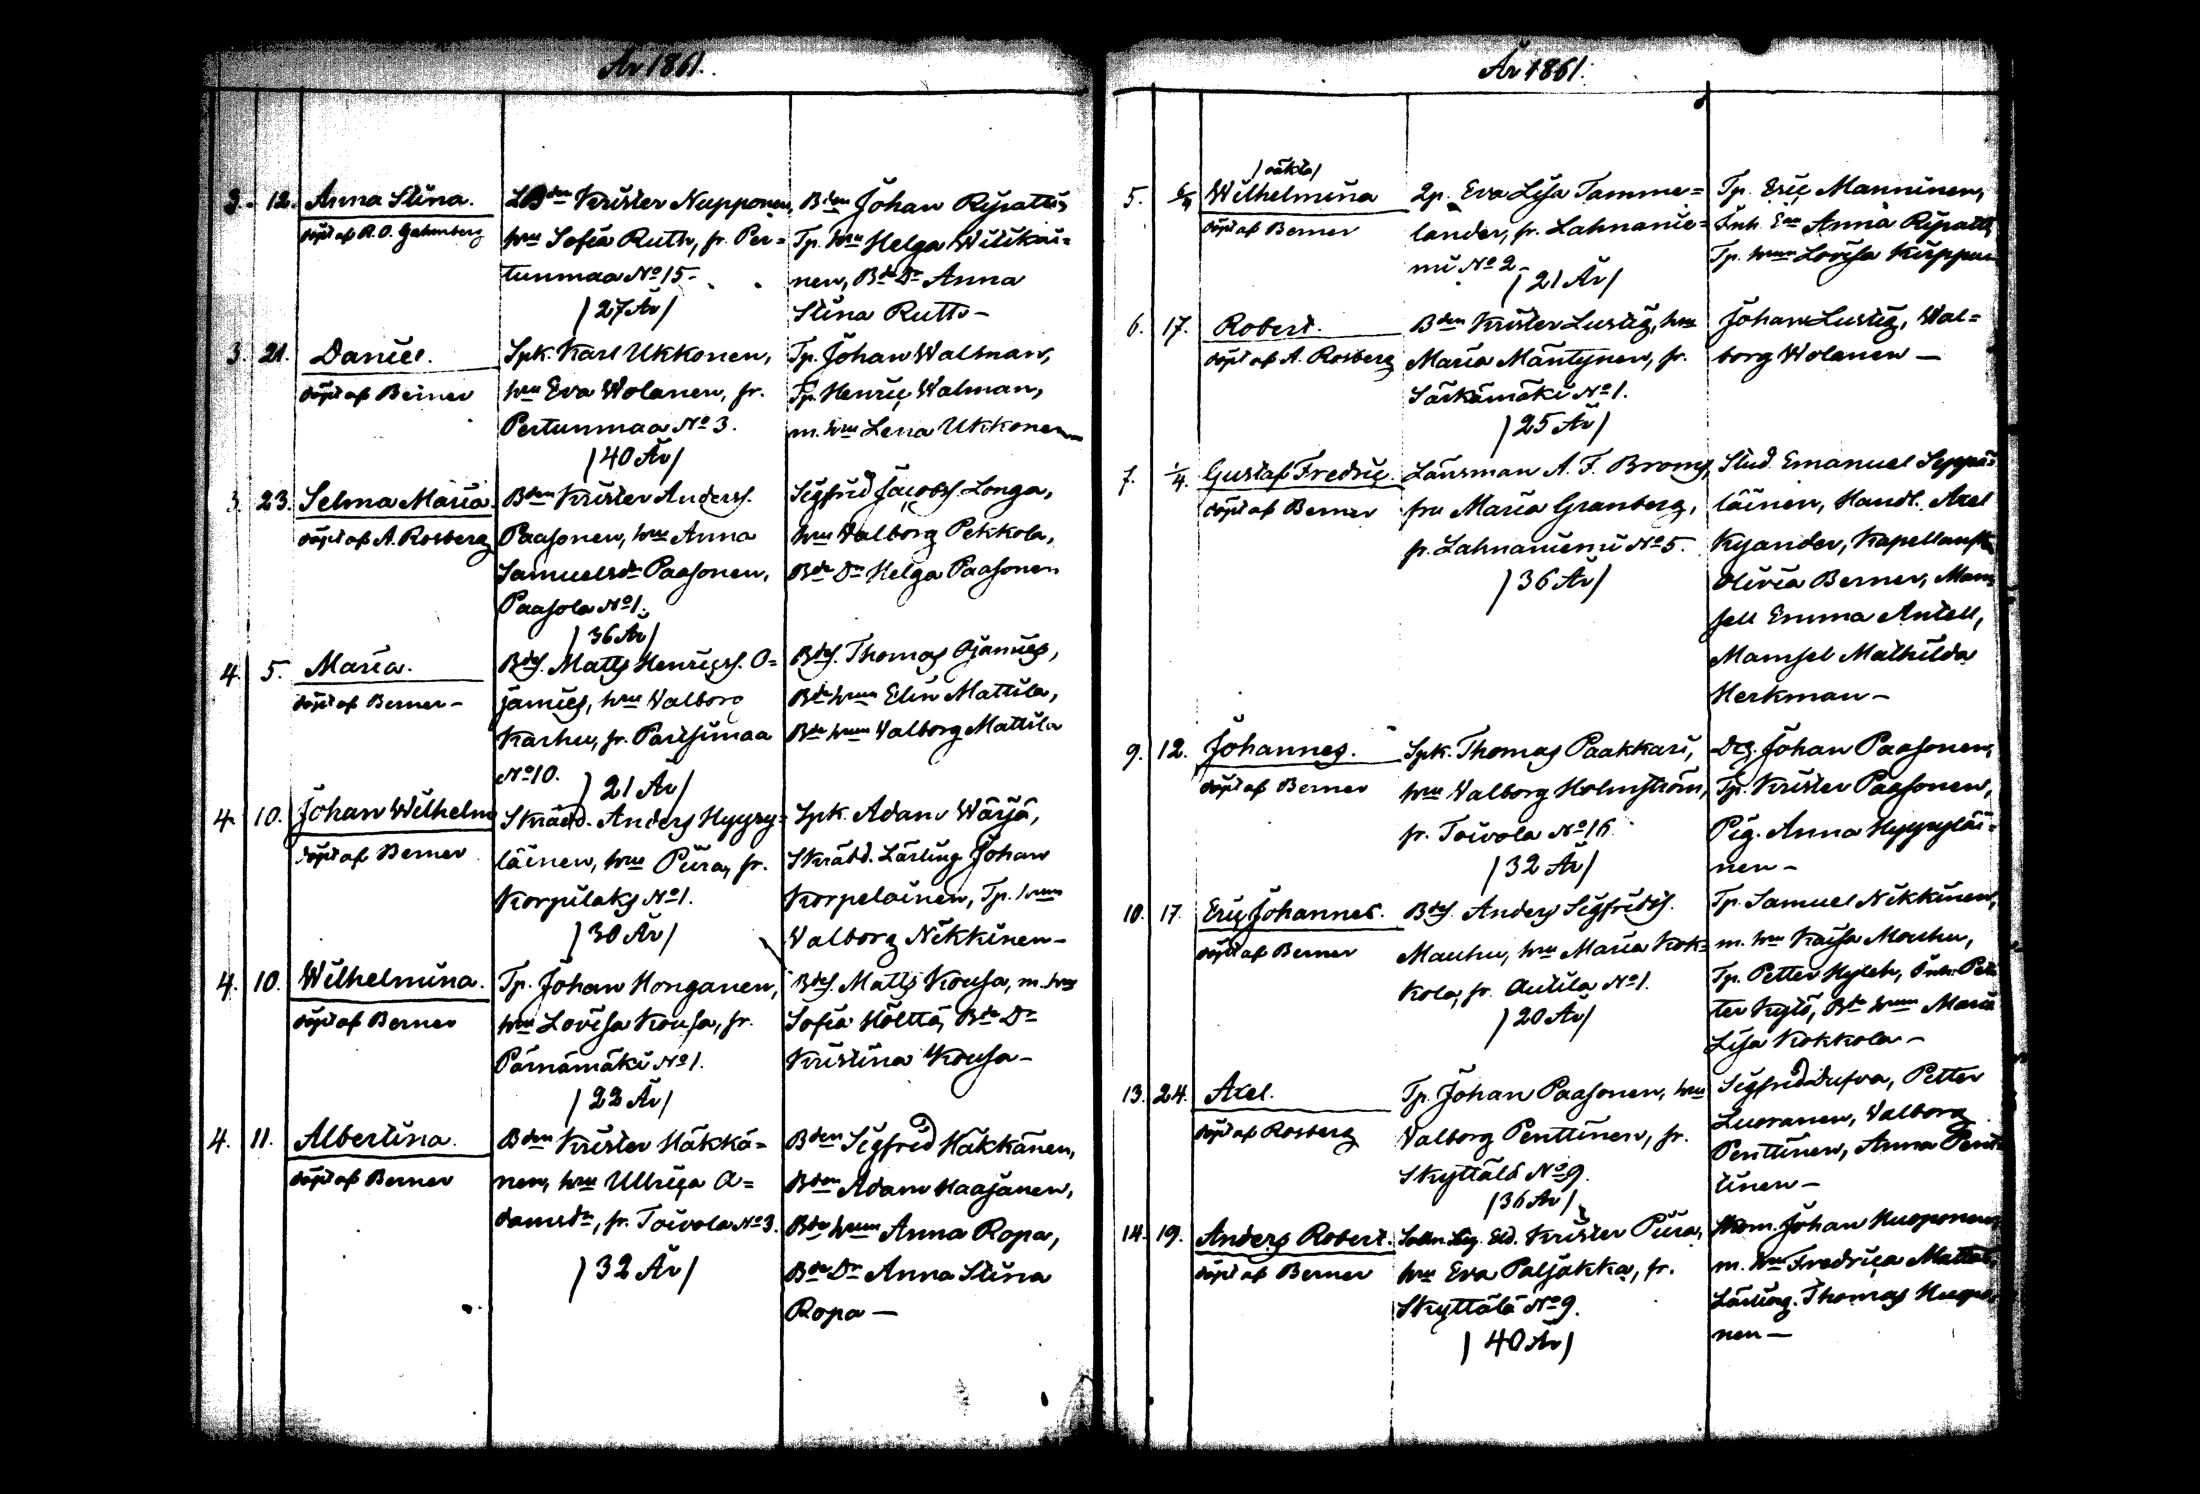 År 1861.
3. 12. Anna Stina.
döpt af R. O. Gahmberg
LBden Krister Nupponen,
hru Sofia Ruth, fr. Per=
tunmaa No 15.
/27 År/
Bden Johan Ryratti,
Tp. hru Helga Wilikai=
nen, Bde Dr Anna
Stina Rutts –
3. 21. Daniel.
döpt af Berner
Spk. Karl Ukkonen,
hru Eva Wolanen, fr.
Pertunmaa No 3.
/40 År/
Tp. Johan Walman,
Tp. Henric Walman,
m. hru Lena Ukkonen
3. 23. Selma Maria.
döpt af A. Rosberg
Bden Krister Anderss.
Paasonen, hru Anna
Samuelsdr Paasonen,
Paasola No 1.
/36 År/
Sigfrid Jacobss Longa,
hru Walborg Pekkola,
Bde Dr Helga Paasonen
4. 5. Maria.
döpt af Berner –
Bdes. Matts Henricss. O=
jamies, hru Valborg
Karhu, fr. Partsimaa
No 10.
/21 År/
Bdes. Thomas Ojamies,
Bde hrun Elin Mattila,
Bde hrun Valborg Mattila
4. 10. Johan Wilhelm
döpt af Berner
Skrädd. Anders Hyyry=
läinen, hru Piira, fr.
Korpilaks No 1.
/30 År/
Spk. Adam Wärjä,
Skrädd. Lärling Johan
Korpelainen, Tp. hrun
Valborg Nikkinen –
4. 10. Wilhelmina.
döpt af Berner
Tp. Johan Honganen,
hru Lovisa Kousa, fr.
Pärnämäki No 1.
/22 År/
Bdes. Matts Kousa, m. hru
Sofia Hölttä, Bde Dr
Kristina Kousa –
4. 11. Albertina.
döpt af Berner
Bden Krister Häkkä=
nen, hru Ullrica A=
damsdr, fr. Toivola No 3.
/32 År/
Bden Sigfrid Häkkänen,
Bden Adam Haajanen,
Bde hrun Anna Ropa,
Bde Dr Anna Stina
Ropa –
År 1861.
/oäkta/
5. Wilhelmina
döpt af Berner
2p. Eva Lisa Tamme=
lander, fr. Lahnanie=
mi No 2.
/21 År/
Tp. Eric Manninen,
Inh. Anna Ryratti,
Tp. hrun Lovisa
6. 17. Robert.
döpt af A. Rosberg
Bden Krister Lustig, hru
Maria Mäntynen, fr.
Särkämäki No 1.
/25 År/
Johan Lustig, Wal=
borg Wolanen –
7. 1/4. Gustaf Fredric.
döpt af Berner
Länsman A. F. Broms,
fru Maria Granberg,
fr. Lahnaniemi No 5.
/36 År/
Stud. Emanuel Seppä=
läinen, Handl. Axel
Kyander, Kapellansfr.
Olivia Berner, Mam
sell Emma Antell,
Mamsel Mathilda
Herkman –
9. 12. Johannes.
döpt af Berner
Spk. Thomas Paakkari,
hru Valborg Holmström,
fr. Toivola No 16.
/32 År/
Drg. Johan Paasonen,
Tp. Krister Paasonen,
Pig. Anna Hyyryläi=
nen –
10. 17. Eric Johannes.
döpt af Berner
Bdes. Anders Sigfridss.
Mauhu, hru Maria Kok=
kola, fr. Autila No 1.
/20 År/
Tp. Samuel Nikkinen,
m. hru Kaisa Mauhu,
Tp. Petter Hyleh, Inh. Pet
ter Kytö, Bde hrun Maria
Lisa Kokkola –
13. 24. Axel.
döpt af Rosberg
Tp. Johan Paasonen, hru
Valborg Penttinen, fr.
Skyttälä No 9.
/36 År/
Sigfrid Dufva, Petter
Luoranen, Valborg
Penttinen, Anna Pent
tinen –
14. 19. Anders Robert.
döpt af Berner
Krister Piira,
hru Eva Paljakka, fr.
Skyttälä No 9.
/40 År/
Johan Huoponen,
m. hru Fredrica
Lärling. Thomas Huopo
nen –